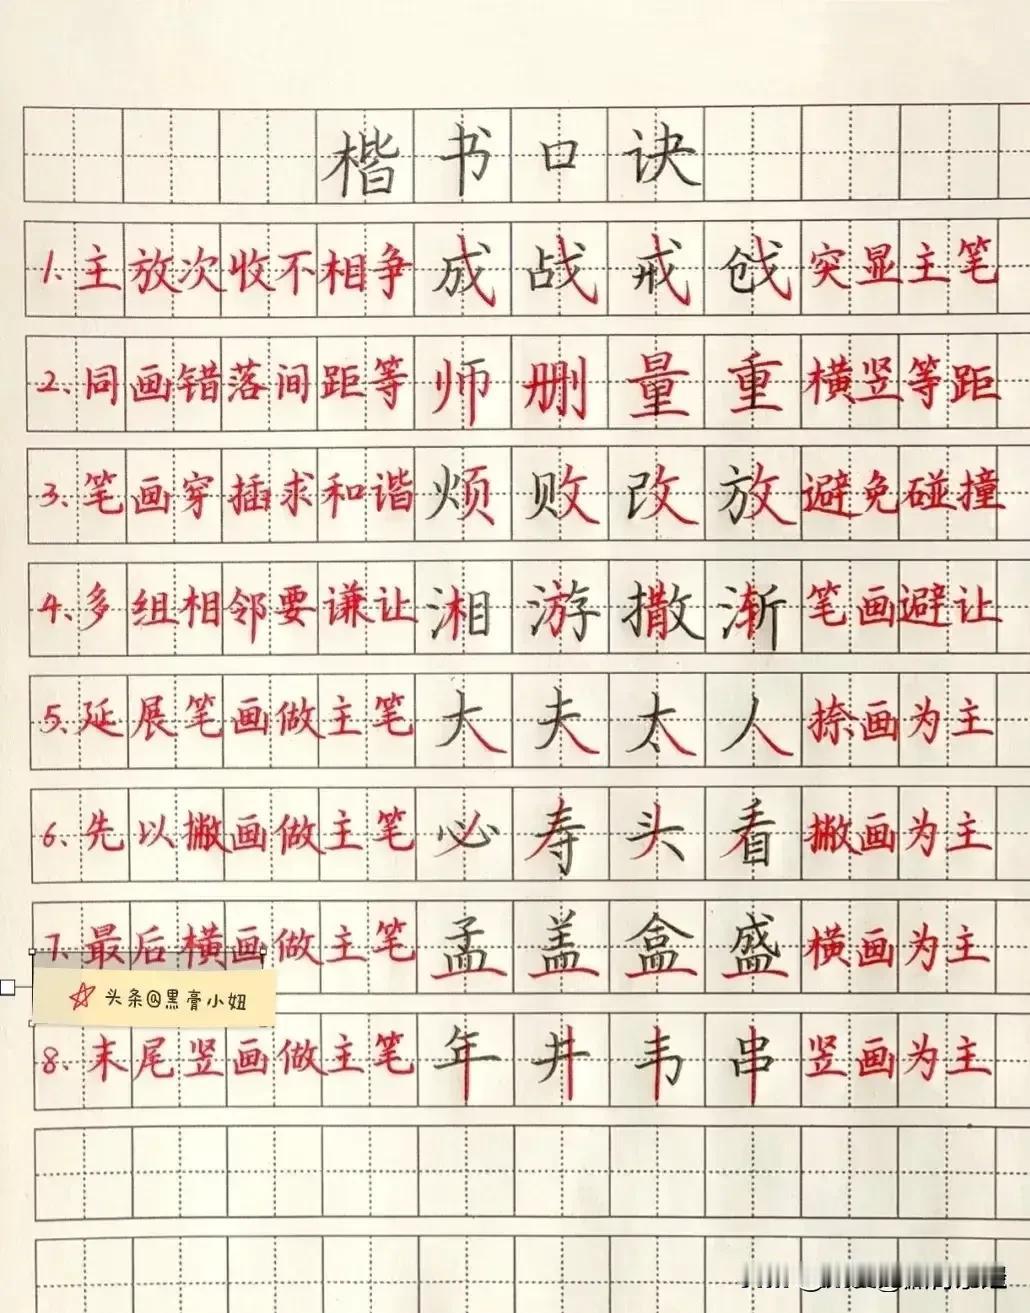 楷书口诀
1.主放次收不相争 成战戒戗 突显主笔
2.同画错落间距等 师删量重 横竖等距
3.笔画穿插求和谐 烦败改放 避免碰撞
4.多组相邻要谦让 湘游撒渐 笔画避让
5.延展笔画做主笔 大夫太人 捺画为主
6.先以撇画做主笔 必寿头看 撇画为主
7.最后横画做主笔 孟盖盒盛 横画为主
头条@黑膏小妞
8.末尾竖画做主笔 年井韦串 竖画为主